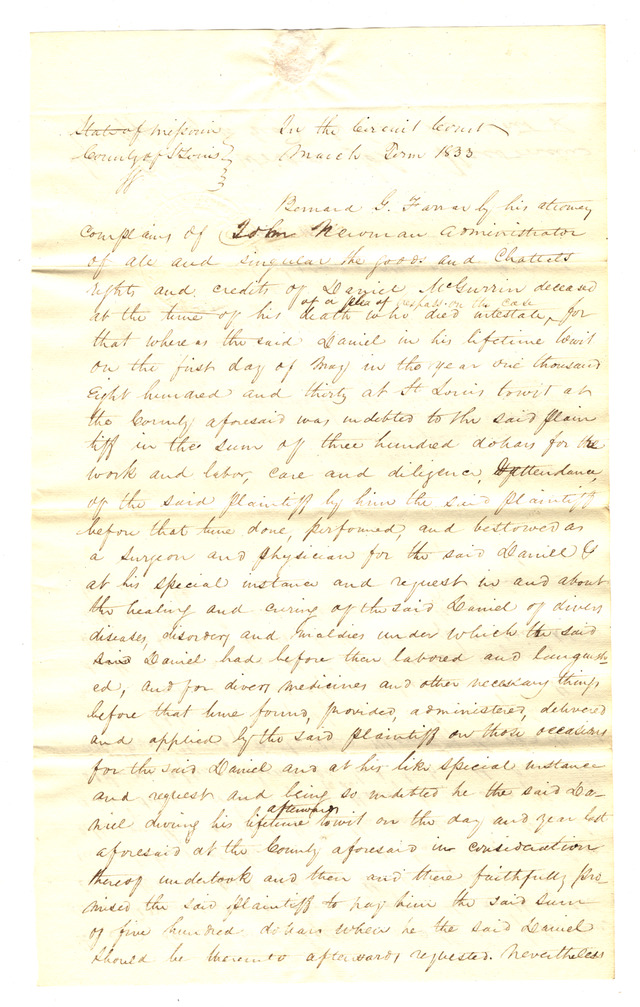 State of Missouri In the Circuit Court
County of St Louis March Term 1833
Bernard G. Farrar by his attorney
complains of John Newman administrator
of all and singular the goods and Chattels
rights and credits of Daniel McGurrin deceased
of a plea of trespass on the case
at the time of his death who died intestate, for
that where as the said Daniel in his lifetime towit
on the first day of May in the year one thousand
Eight hundred and thirty at St Louis towit at
the County aforesaid was indebted to the said plain
tiff in the sum of three hundred dollars for the
work and labor, care and diligence, attendance,
of the said plaintiff by him the said plaintiff
before that time done, performed, and bestowed as
a surgeon and physician for the said Daniel &
at his special instance and request in and about
the healing and curing of the said Daniel of divers
diseases, disorders, and maldies under which the said
said Daniel had before then labored and languish-
ed, and for divers medicines and other necessary things
before that time found, provided, administered, delivered
and applied by the said plaintiff on those occasions
for the said Daniel and at his like special instance
and request and being so indebted he the said Da-
afterwards
niel during his lifetime towit on the day and year last
aforesaid at the County aforesaid in consideration
thereof undertook and then and there faithfully pro
mised the said plaintiff to pay him the said sum
of five hundred dollars when he the said Daniel
should be thereunto afterwards requested. Nevertheless